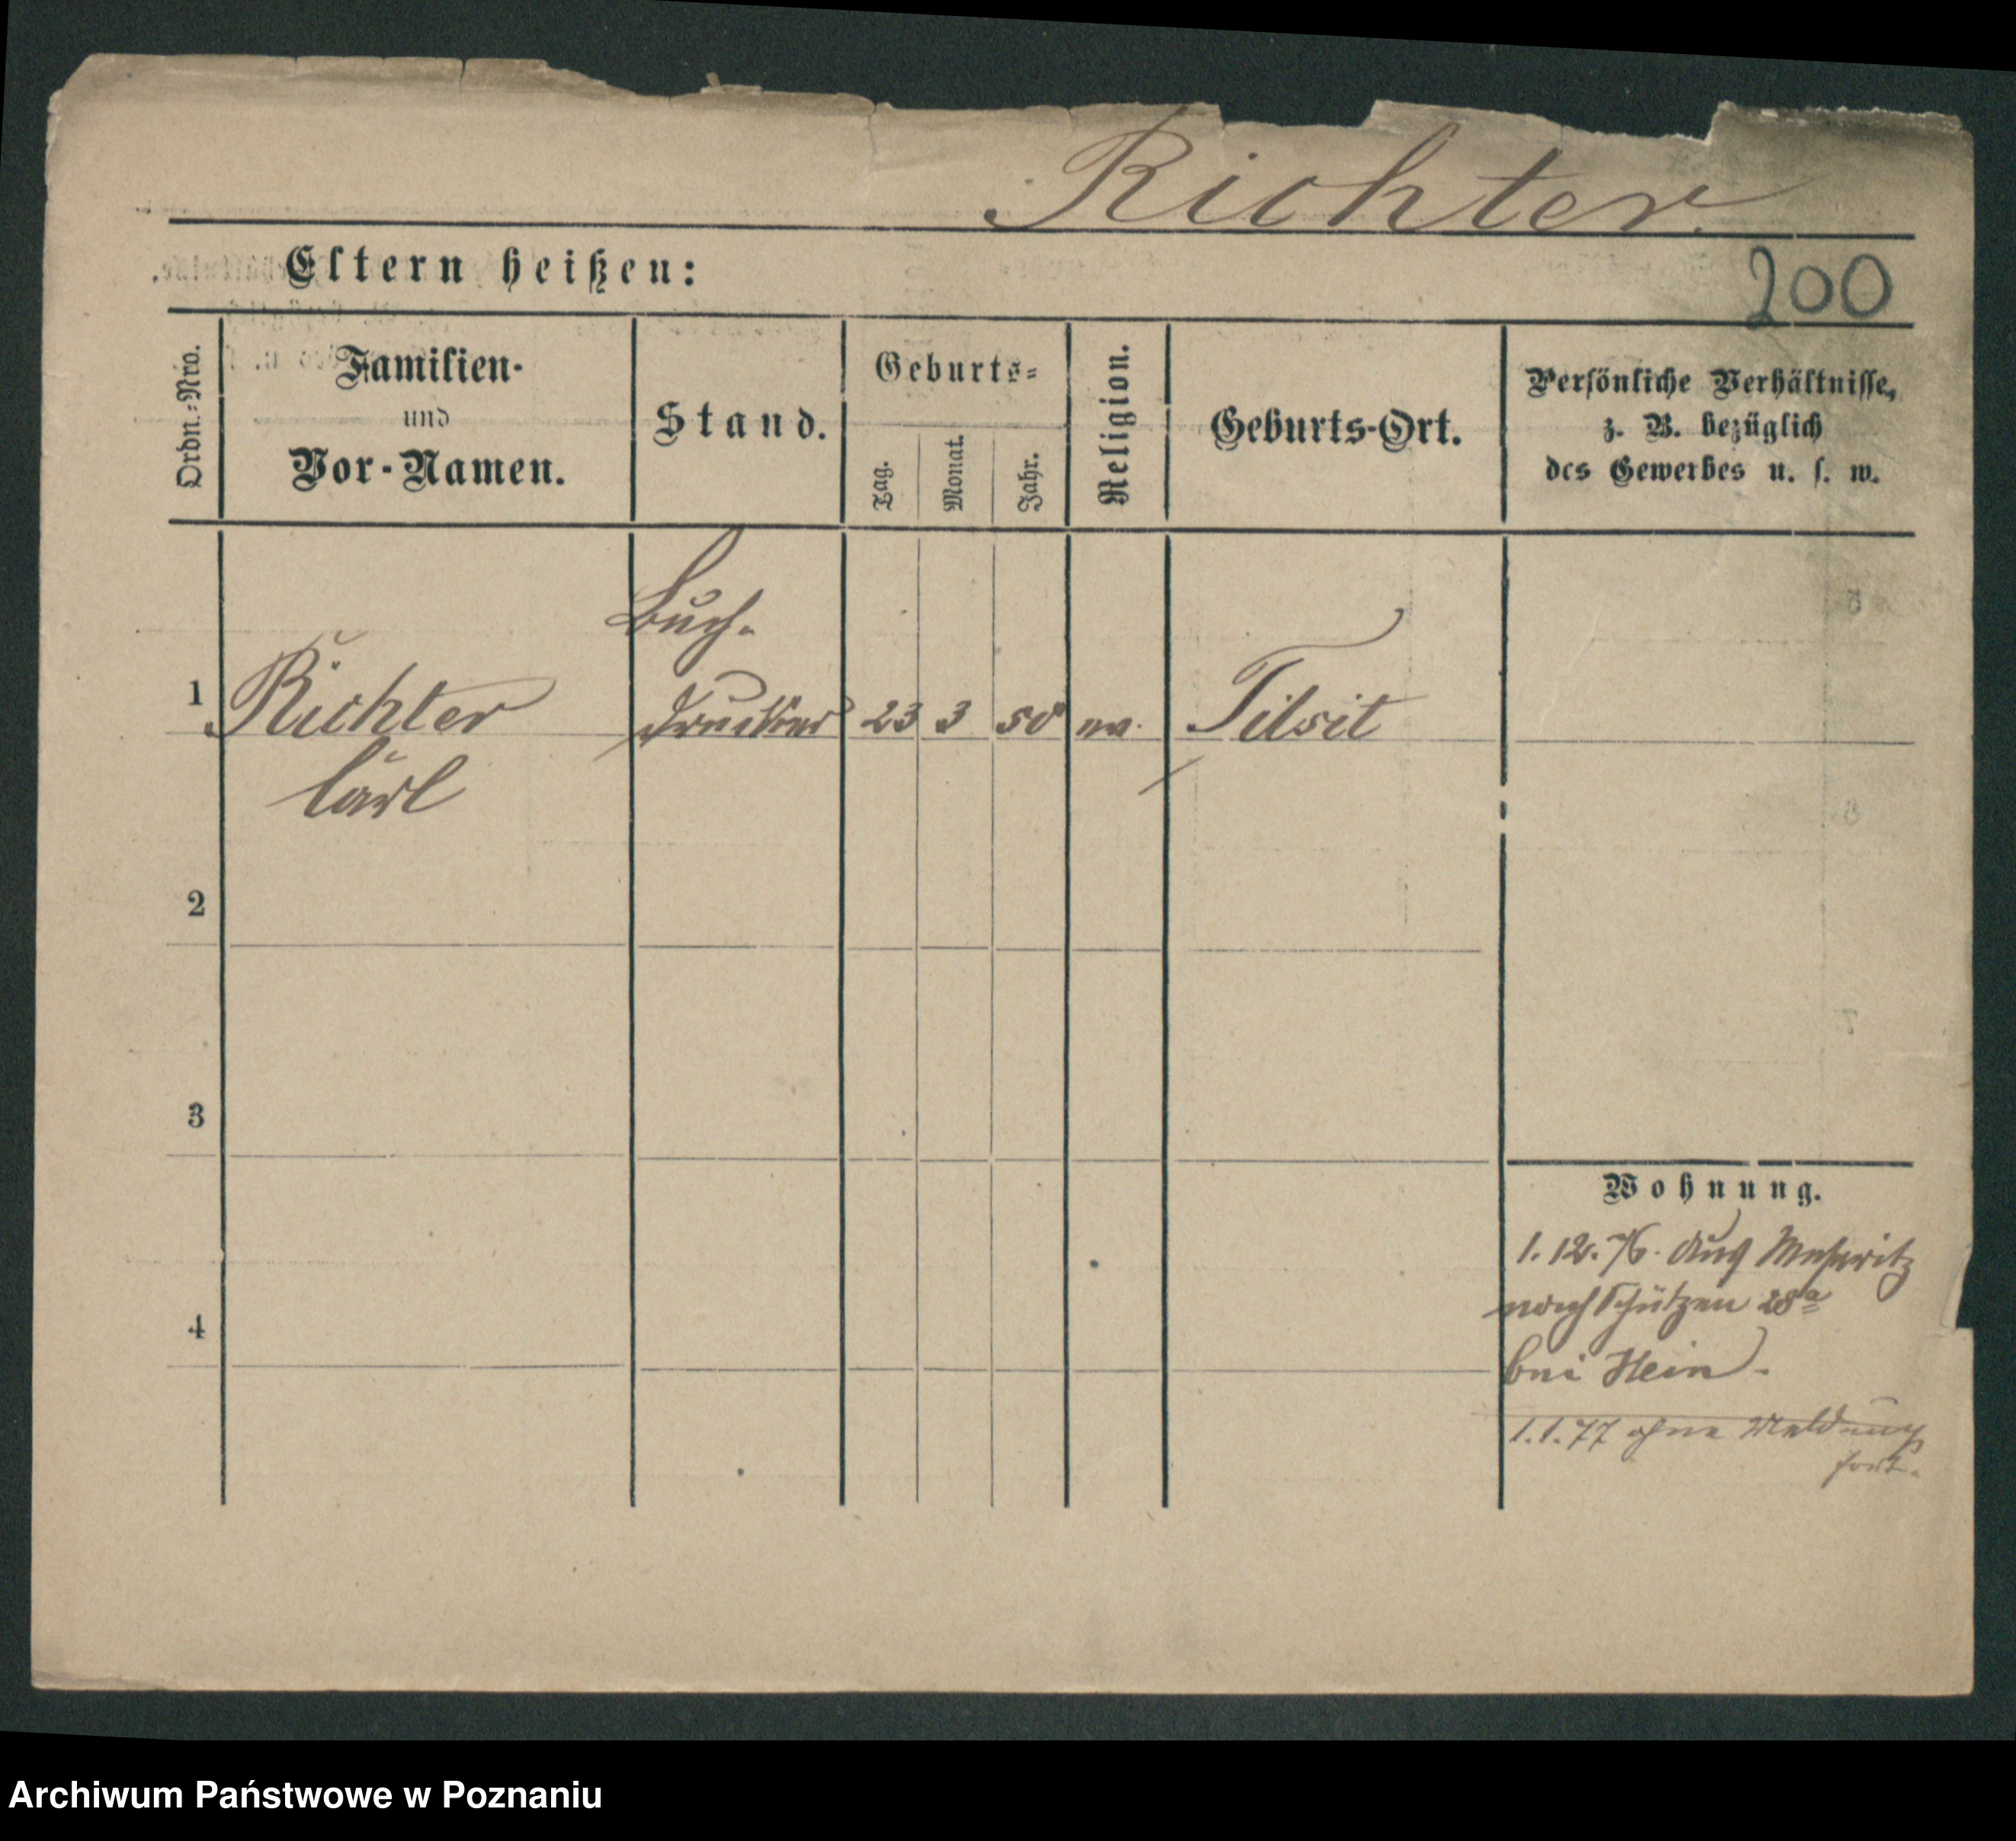 Richter.
Eltern heißen:
200
Ordn.-Nro.
Familien-
und
Vor-Namen.
Stand.
Geburts-
Tag.
Monat.
Jahr.
Religion.
Geburts-Ort.
Persönliche Verhältnisse,
z. B. bezüglich
des Gewerbes u. s. w.
Buch-
1 Richter drucker 23 3 50 ev. Tilsit
Carl
2
3
Wohnung.
1. 12. 76. aus Meseritz
nach Schützen 28a
4
bei Hein.
1. 1. 77 ohne Meldung
fort.
Archiwum Państwowe w Poznaniu